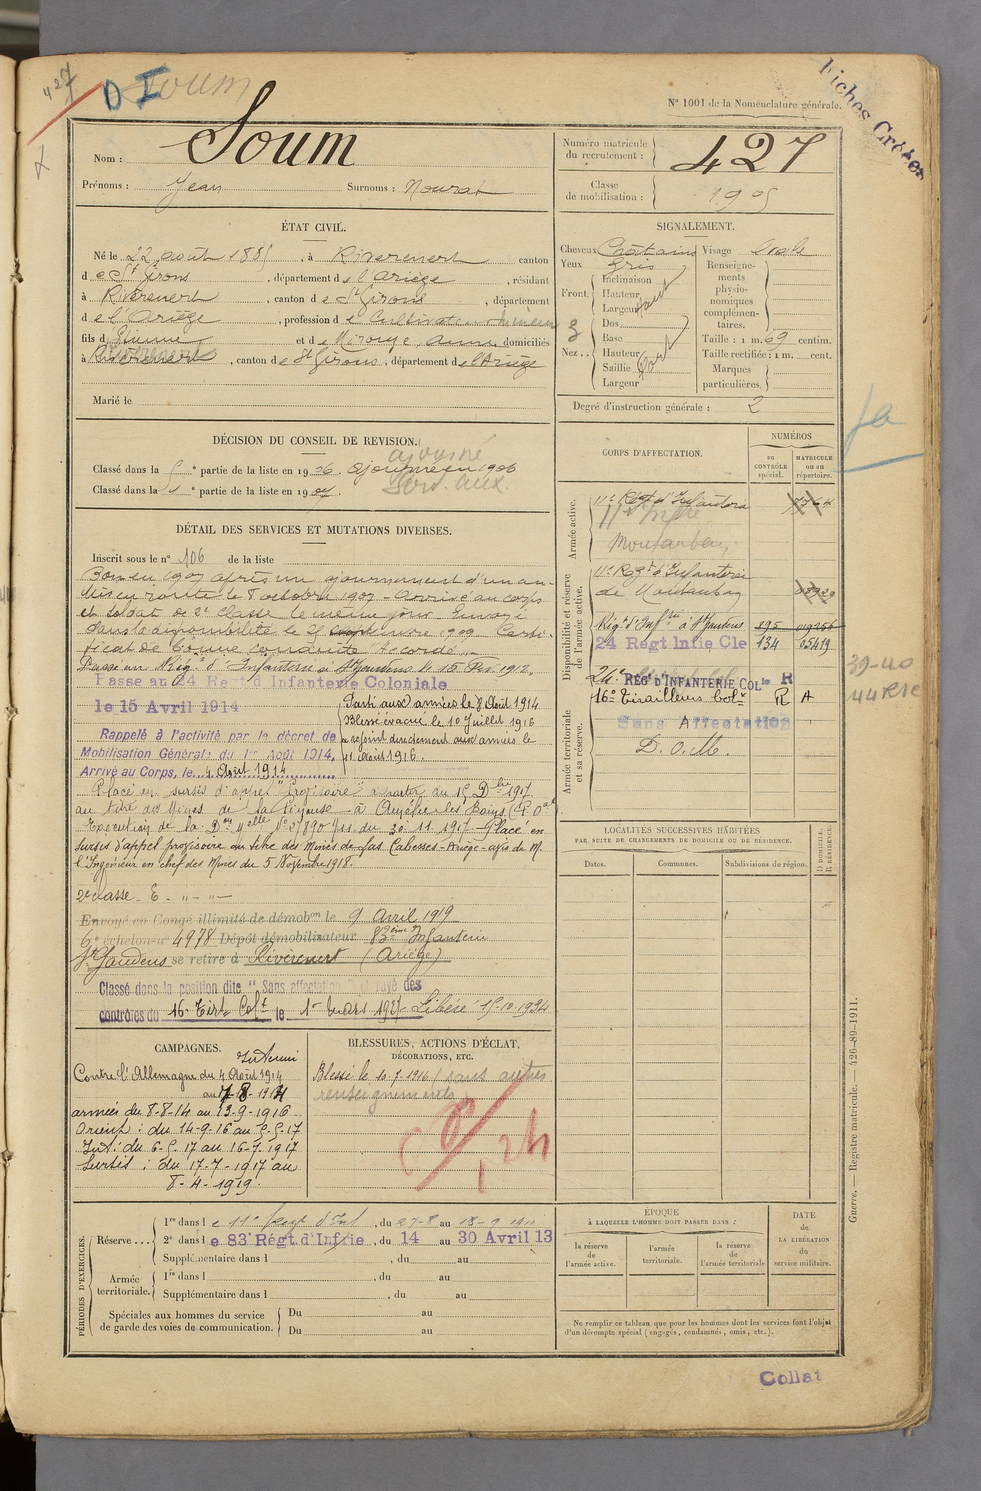 427
D I Soum
N° 1001 de la Nomenclature générale.
Fiches Créées
Nom : Soum
Prénoms : Jean Surnoms : Nourat
Numéro matricule du recrutement : 427
Classe de mobilisation : 1905
ÉTAT CIVIL.
Né le 22 août 1885, à Riverenert canton
de St Girons, département de l'Ariège, résidant
à Riverenert, canton de St Girons, département
de l'Ariège, profession de Cultivateur
fils d Etienne et de Mirouze, Anna domiciliés
à Riverenert, canton de St Girons, département de l'Ariège
Marié le
SIGNALEMENT.
Cheveux Châtains Visage Ovale
Yeux Gris
Front. Inclinaison
Hauteur haut
Largeur
Nez... Dos
Base
Hauteur
Saillie
Largeur
Renseignements physionomiques complémentaires:
Taille : 1 m. 69 centim.
Taille rectifiée : 1 m. cent.
Marques particulières.
Degré d'instruction générale : 2
DÉCISION DU CONSEIL DE REVISION.
Classé dans la 5 e partie de la liste en 1906. Ajourné en 1906
ajourné
Classé dans la 1 e partie de la liste en 1907.
Serv. aux.
CORPS D'AFFECTATION.
NUMÉROS
au CONTRÔLE spécial.
MATRICULE ou au répertoire.
Armée active.
11e Régt d'Infanterie 7764
11e Infie
Montauban
Disponibilité et réserve de l'armée active.
11e Régt d'Infanterie
de Montauban
Rég. d'Infrie à St Gaudens 195
24 Régt Infie Cle 134 05419
24e RÉGt D'INFANTERIE COLle R
16e Tirailleurs Colx R A
Armée territoriale et sa réserve.
Sans Affectation
D. O. M.
39-40
44 R1C
DÉTAIL DES SERVICES ET MUTATIONS DIVERSES.
Inscrit sous le n° 106 de la liste
Bon en 1907 après un ajournement d'un an
Mis en route le 8 octobre 1907 - Arrivé au corps
et soldat de 2e classe le même jour. Envoyé
dans la disponibilité le 25 septembre 1909 Certi-
ficat de bonne conduite Accordé
Passé au Régt d'Infanterie à St Gaudens le 15 Fév. 1912.
Passé au 24 Regt d'Infanterie Coloniale
le 15 Avril 1914
Rappelé à l'activité par le décret de
Mobilisation Générale du 1er Août 1914,
Arrivé au Corps, le 4 Août 1914
Parti aux armées le 8 Août 1914
Blessé évacué le 10 Juillet 1916
a rejoint directement aux armées le
11 Août 1916.
Placé en sursis d'appel "Provisoire" à partir du 15 Dbre 1917
au titre des Mines de la Pinouse à Amélie-les-Bains (P. Oles)
Execution de la Don Melle N° 27890 du 30-11-1917 - Placé en
sursis d'appel provisoire au titre des Mines de las Cabesses - Ariège - avis de M.
l'Ingénieur en chef des Mines du 5 Novembre 1918.
2e classe E.
Envoyé en Congé illimité de démobon le 9 Avril 1919
6e échelon n° 4978 Dépôt démobilisateur 83ème Infanterie
St Gaudens se retire à Rivèrenert (Ariège)
Classé dans la position dite "Sans affectation" et rayé des
contrôles du 16e Tirs Colx le 1er Mars 1927 - Libéré 15-10-1934
LOCALITÉS SUCCESSIVES HABITÉES
PAR SUITE DE CHANGEMENTS DE DOMICILE OU DE RÉSIDENCE.
Dates. Communes. Subdivisions de région.
D DOMICILE.
R RÉSIDENCE.
CAMPAGNES.
Intérieur
Contre l'Allemagne du 4 Août 1914
au 7-8-1914
armées du 8-8-14 au 13-9-1916
Orient : du 14-9-16 au 5-5-17
Int : du 6-5-17 au 16-7-1917
Sursis : du 17-7-1917 au
8-4-1919.
BLESSURES, ACTIONS D'ÉCLAT,
DÉCORATIONS, ETC.
Blessé le 10-7-1916 (sans autres
renseignements)
PÉRIODES D'EXERCICES.
Réserve... 1re dans le 11e Regt d'Inf, du 27-8 au 18-9 1911
2e dans le 83e Régt. d'Infrie, du 14 au 30 Avril 13
Supplémentaire dans l , du au
Armée territoriale. 1re dans l , du au
Supplémentaire dans l , du au
Spéciales aux hommes du service de garde des voies de communication. Du au
Du au
ÉPOQUE
À LAQUELLE L'HOMME DOIT PASSER DANS :
la réserve de l'armée active.
l'armée territoriale.
la réserve de l'armée territoriale
DATE de LA LIBÉRATION du service militaire.
Ne remplir ce tableau que pour les hommes dont les services font l'objet
d'un décompte spécial (engagés, condamnés, omis, etc.).
Guerre. — Registre matricule. — 426-89-1911.
Collat